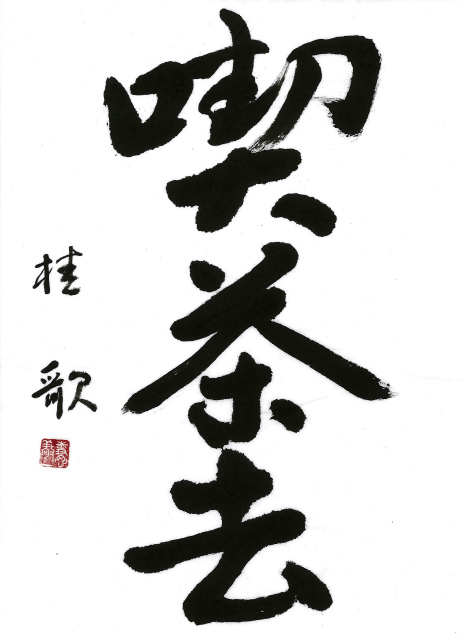 喫茶去
桂歌